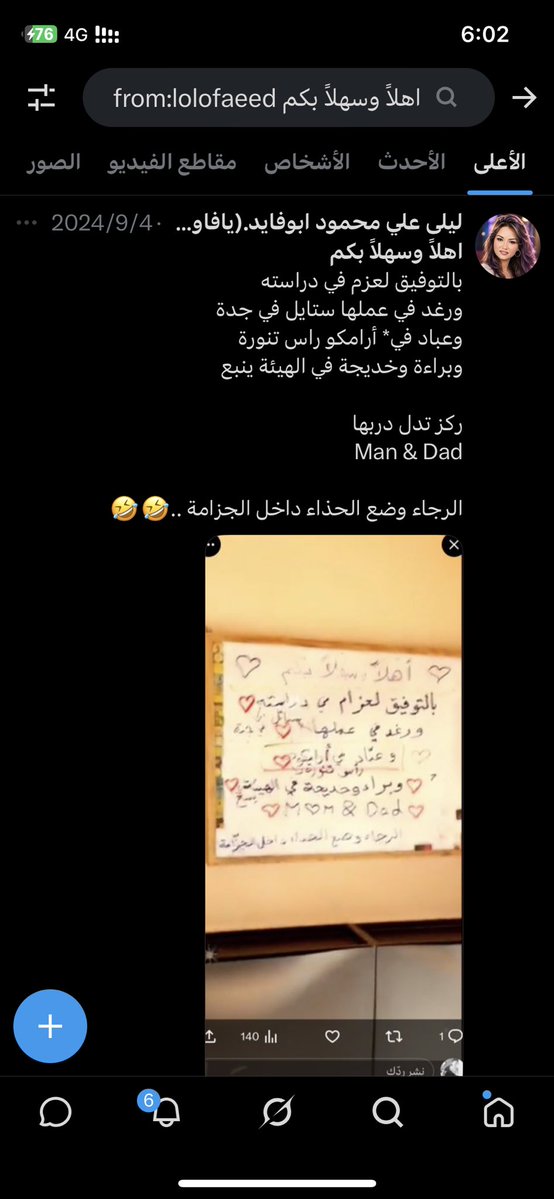 76 4G 6:02
from:lolofaeed اهلاً وسهلاً بكم
الأعلى الأحدث الأشخاص مقاطع الفيديو الصور
ليلى علي محمود ابوفايد.(يافاو... ·2024/9/4
اهلاً وسهلاً بكم
بالتوفيق لعزم في دراسته
ورغد في عملها ستايل في جدة
وعباد في* أرامكو راس تنورة
وبراءة وخديجة في الهيئة ينبع
ركز تدل دربها
Man & Dad
الرجاء وضع الحذاء داخل الجزامة ..🤣🤣
أهلاً وسهلاً بكم
بالتوفيق لعزام في دراسته
ورغد في عملها في جدة
و عبّاد في أرامكو
راس تنورة
وبراءة وخديجة في الهيئة
ينبع
MOM & Dad
الرجاء وضع الحذاء داخل الجزّامة
140 1
نشر ردّك
6